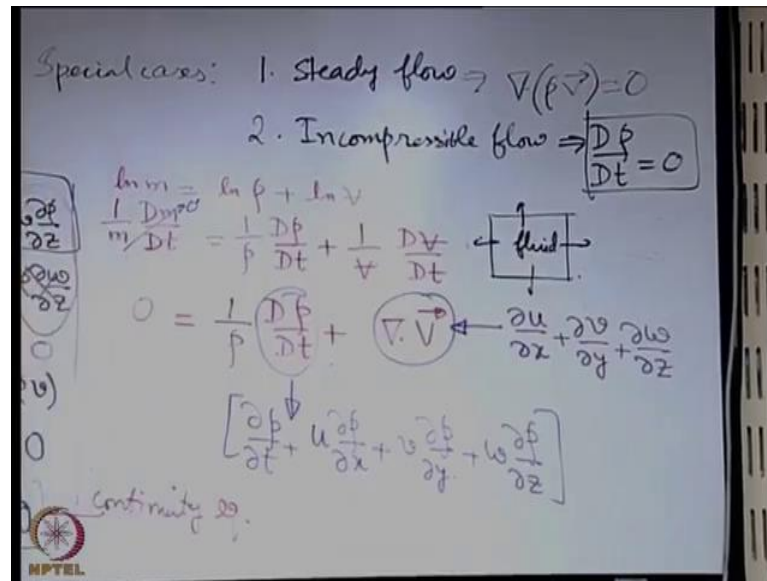 Special cases: 1. Steady flow ⇒ ∇.(ρV⃗)=0
2. Incompressible flow ⇒ Dρ/Dt = 0
ln m = ln ρ + ln V
1/m Dm/Dt →0 = 1/ρ Dρ/Dt + 1/V DV/Dt
fluid
∂ρ/∂z
0 = 1/ρ Dρ/Dt + ∇.V⃗ ← ∂u/∂x + ∂v/∂y + ∂w/∂z
∂w/∂z
0
v)
[∂ρ/∂t + u ∂ρ/∂x + v ∂ρ/∂y + w ∂ρ/∂z]
0
continuity eq.
NPTEL